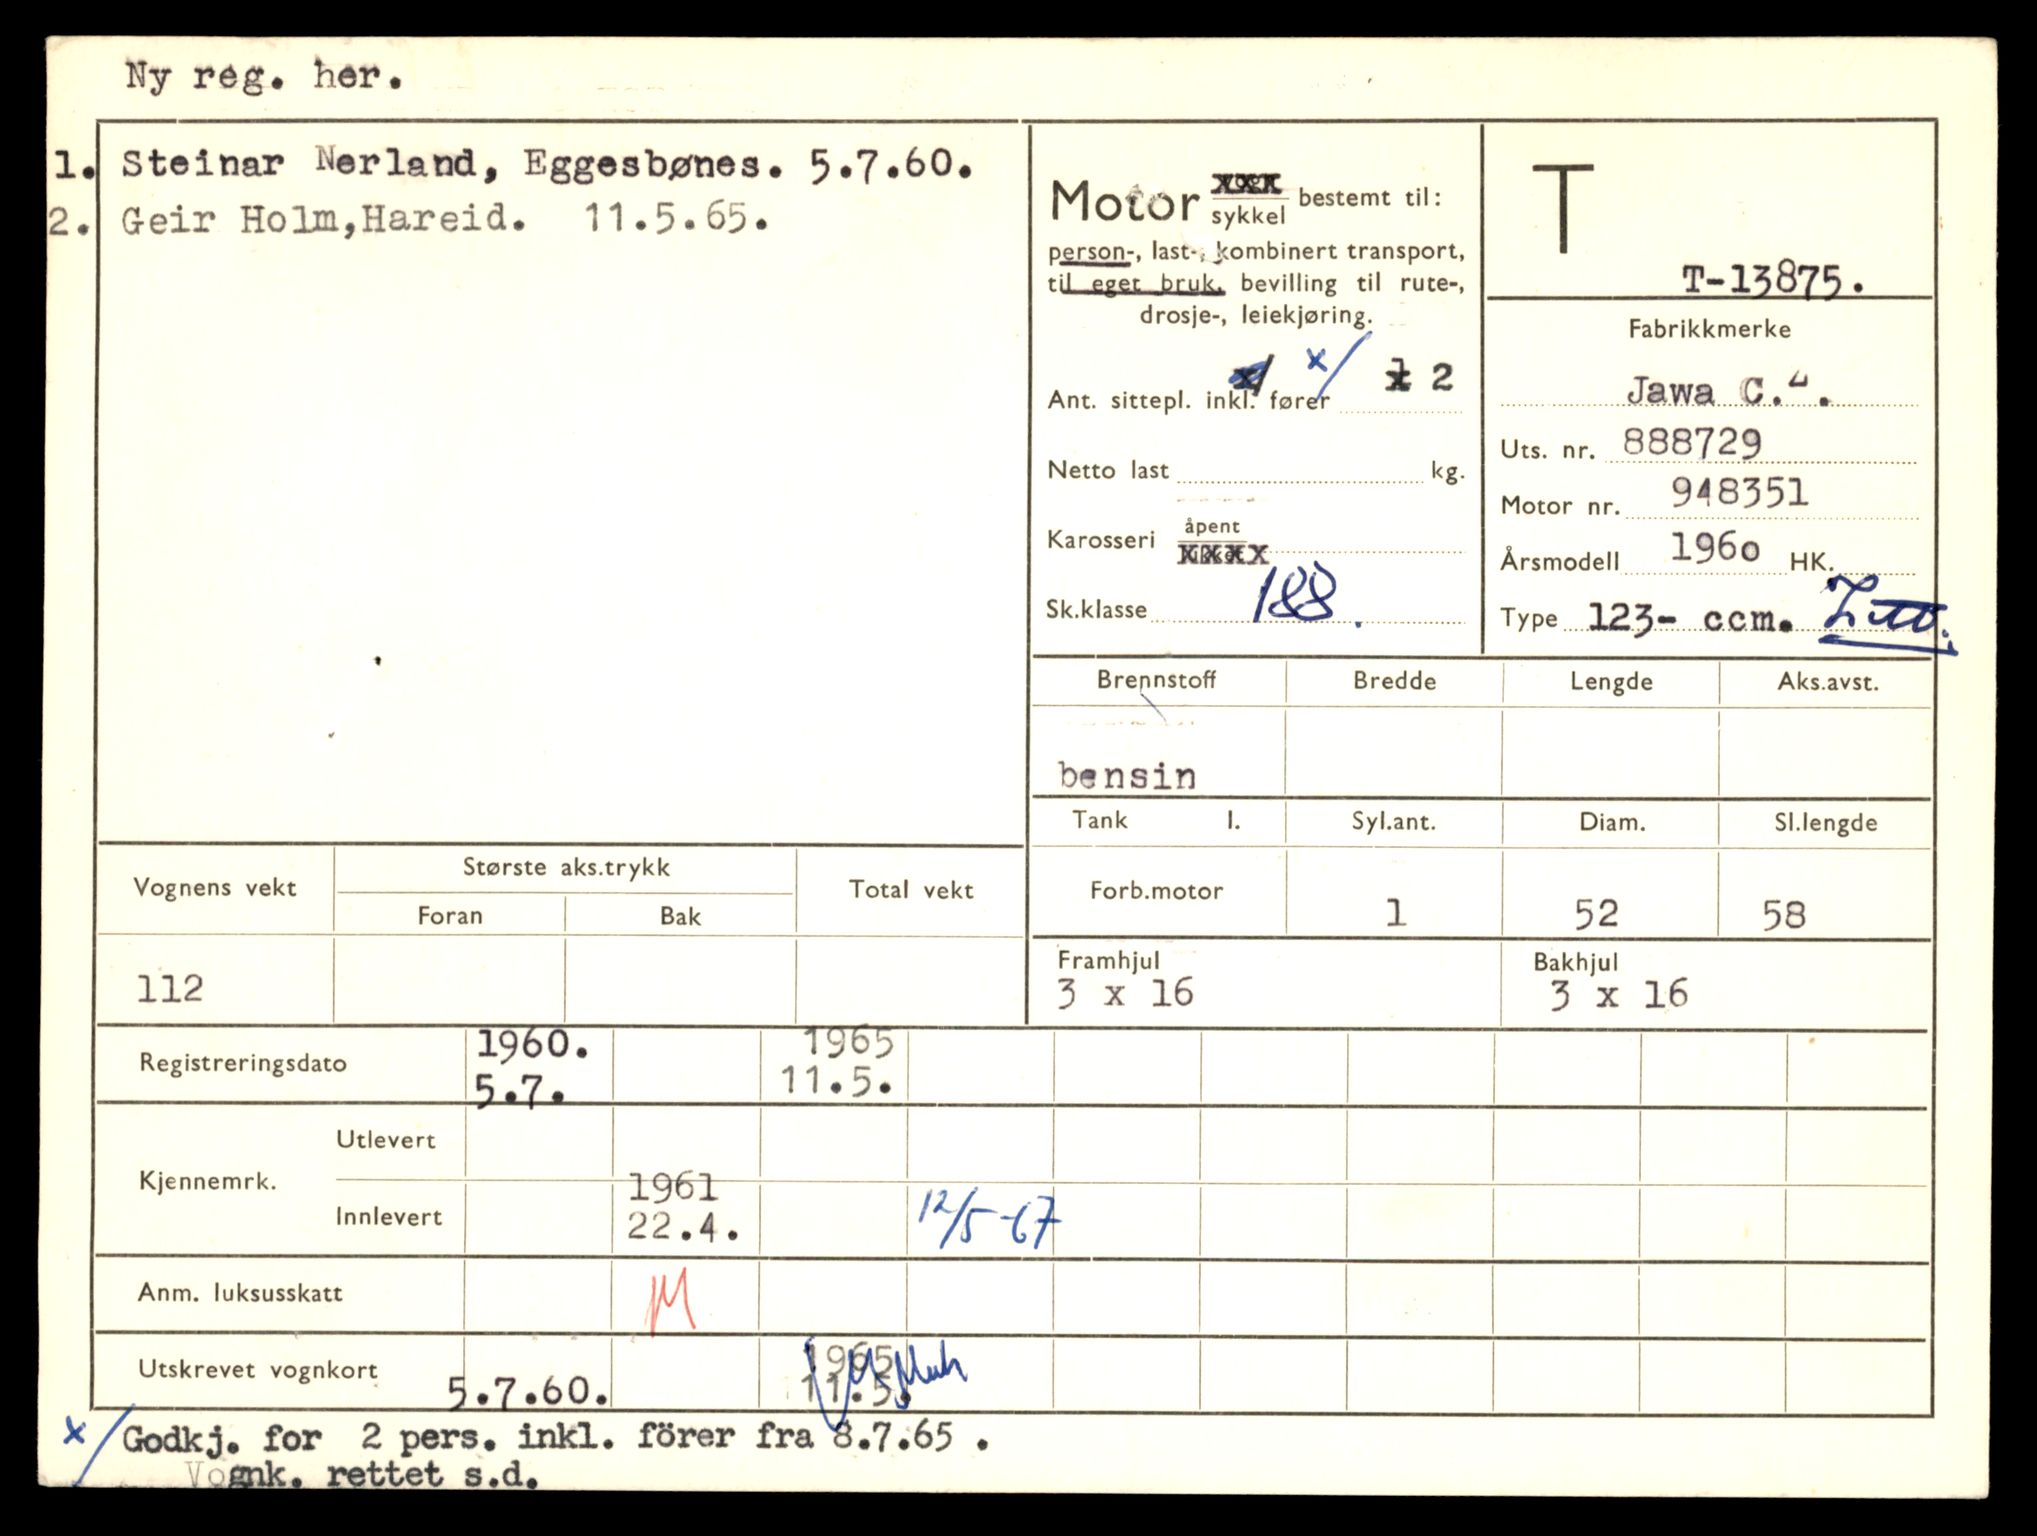 Ny reg. her.
1. Steinar Nerland, Eggesbønes. 5.7.60.
2. Geir Holm,Hareid. 11.5.65.
Motor sykkel bestemt til:
person-, last-, kombinert transport,
til eget bruk, bevilling til rute-,
drosje-, leiekjøring.
x/ x/ 1 2
Ant. sittepl. inkl. fører
Netto last kg.
Karosseri åpent
xxxx
Sk.klasse 188.
T
T-13875.
Fabrikkmerke
Jawa C.Z.
Uts. nr. 888729
Motor nr. 948351
Årsmodell 1960 HK.
Type 123- ccm.
Brennstoff Bredde Lengde Aks.avst.
bensin
Tank l. Syl.ant. Diam. Sl.lengde
Forb.motor 1 52 58
Framhjul Bakhjul
3 x 16 3 x 16
Vognens vekt Største aks.trykk Total vekt
Foran Bak
112
Registreringsdato 1960. 1965
5.7. 11.5.
Kjennemrk. Utlevert
Innlevert 1961 12/5-67
22.4.
Anm. luksusskatt M
Utskrevet vognkort 1965
5.7.60. 11.5.
x/ Godkj. for 2 pers. inkl. förer fra 8.7.65 .
Vognk. rettet s.d.